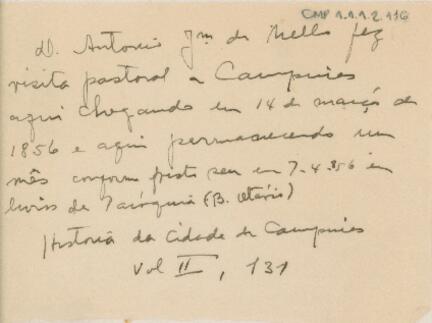 CMP 1.1.1.2.116
D. Antonio Jm de Mello fez
visita pastoral a Campinas
aqui chegando em 14 de março de
1856 e aqui permanecendo um
mês conforme visto seu em 7-4-856 em
livros de Paróquia (B. Otávio)
Historia da Cidade de Campinas
Vol II, 131